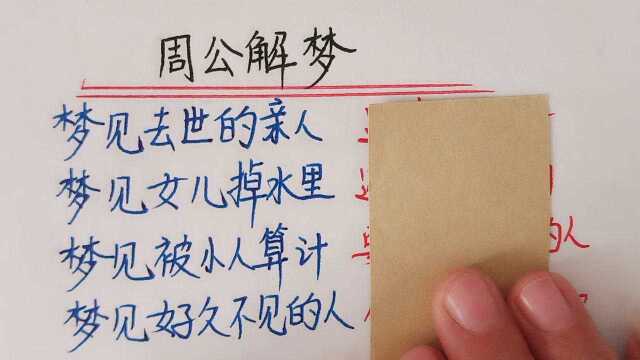 周公解梦
梦见去世的亲人
梦见女儿掉水里
梦见被小人算计 的人
梦见好久不见的人